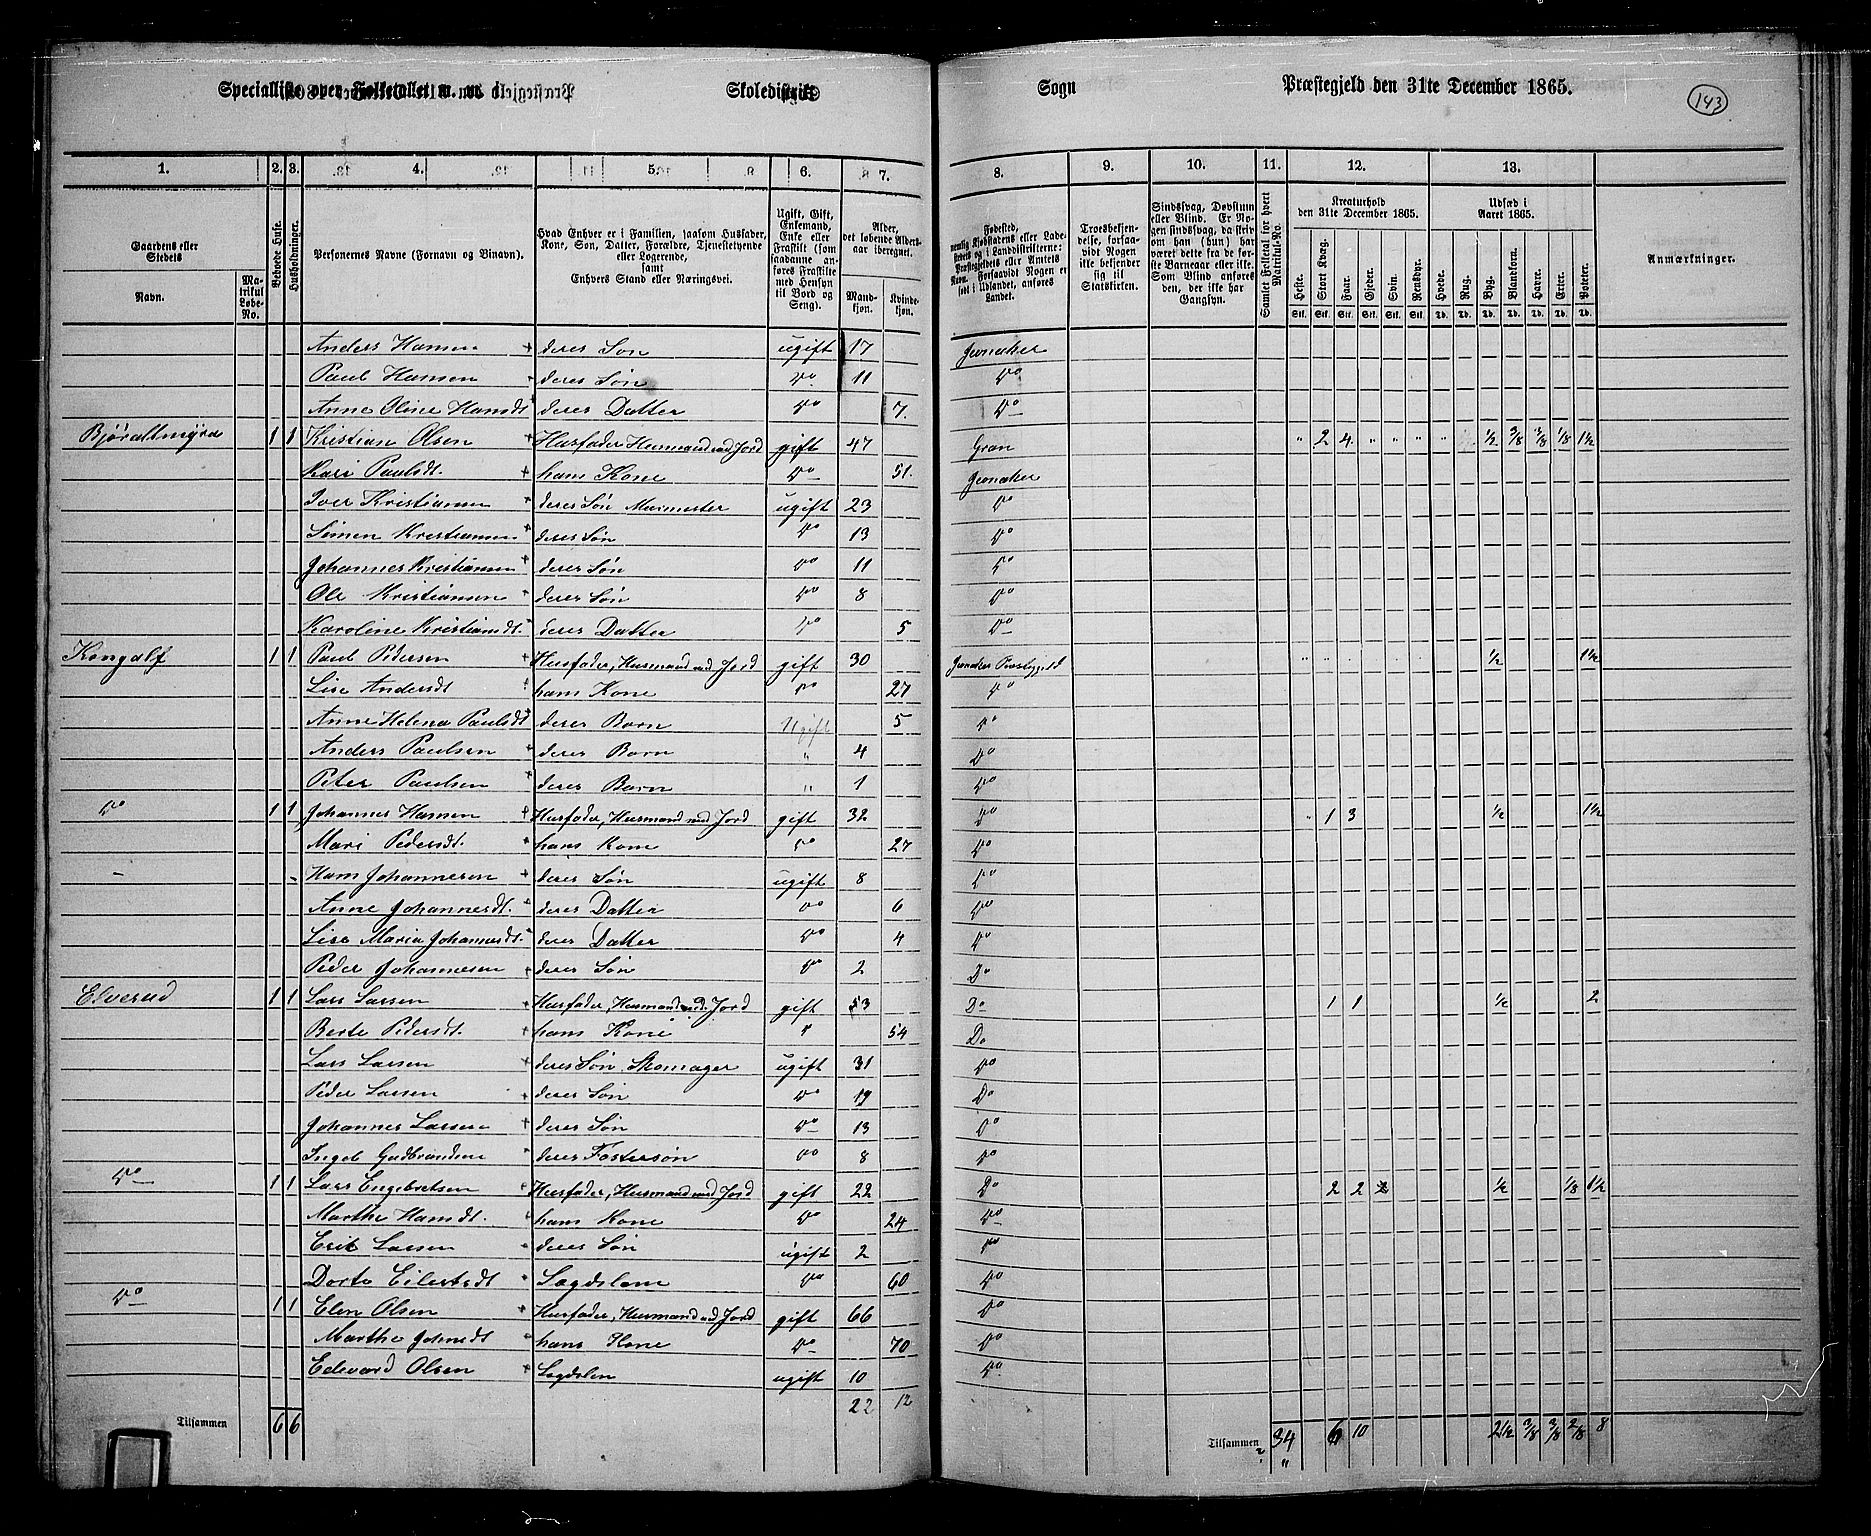 Specialliste over Folketallet m. m. i Skoledistrikt Sogn Præstegjeld den 31te December 1865.
143
1. 2. 3. 4. 5. 6. 7. 8. 9. 10. 11. 12. 13.
Gaardens eller Stedets
Navn.
Matrikul Løbe-No.
Beboede Huse.
Husholdninger.
Personernes Navne (Fornavn og Binavn).
Hvad Enhver er i Familien, saasom Husfader, Kone, Søn, Datter, Forældre, Tjenestetyende eller Logerende, samt Enhvers Stand eller Næringsvei.
Ugift, Gift, Enkemand, Enke eller Fraskilt (saadanne anføres Fraskilte med Hensyn til Bord og Seng).
Alder, det løbende Aldersaar iberegnet.
Mandkjøn.
Kvindekjøn.
Fødested,
Troesbekjendelse, forsaavidt Nogen ikke bekjender sig til Statskirken.
Sindssvag, Døvstum eller Blind. Er Nogen sindssvag, da skrives om han (hun) har været dette fra de første Barneaar eller ikke. Som Blind anføres den, der ikke har Gangsyn.
Samlet Folketal for hvert Matrikul-No.
Kreaturhold den 31te December 1865.
Heste. Stort Kvæg. Faar. Gjeder. Svin. Rensdyr.
Udsæd i Aaret 1865.
Hvede. Rug. Byg. Blandkorn. Havre. Erter. Poteter.
Anmærkninger.
Anders Hansen deres Søn ugift 17 Jevnaker
Paul Hansen deres Søn Do 11 Do
Anne Oline Hansdt deres Datter Do 7. Do
Bjøraltmyra 1 1 Kristian Olsen Husfader Husmand med Jord gift 47 Gran " 2 4 " " " " 1/2 3/8 3/8 1/8 1 1/2
Kari Paulsdt. hans Kone Do 51. Jevnaker
Iver Kristiansen deres Søn Murmester ugift 23 Do
Simen Kristiansen deres Søn Do 13 Do
Johannes Kristiansen deres Søn Do 11 Do
Ole Kristiansen deres Søn Do 8 Do
Karoline Kristiansdt. deres Datter Do 5 Do
Kongalf 1 1 Paul Pedersen Husfader, Husmand med Jord gift 30 Jevnaker Præstegjeld 1/2 1 1/2
Lise Andersdt hans Kone Do 27 Do
Anne Helena Paulsdt deres Barn Ugift 5 Do
Anders Paulsen deres Barn " 4 Do
Peter Paulsen deres Barn " 1 Do
Do 1 1 Johannes Hansen Husfader, Husmand med Jord gift 32 Do " 1 3 1/2 1 1/2
Mari Pedersdt. hans Kone Do 27 Do
Hans Johannesen deres Søn ugift 8 Do
Anne Johannesdt. deres Datter Do 6 Do
Lise Maria Johannesdt. deres Datter Do 4 Do
Peder Johannesen deres Søn Do 2 Do
Elverud 1 1 Lars Larsen Husfader, Husmand med Jord gift 53 Do 1 1 1/2 2
Berte Pedersdt. hans Kone " 54 Do
Lars Larsen deres Søn Skomager ugift 31 Do
Peder Larsen deres Søn Do 19 Do
Johannes Larsen deres Søn Do 13 Do
Ingeb Gudbrandsen deres Fostersøn Do 8 Do
Do 1 1 Lars Engebretsen Husfader, Husmand med Jord gift 22 Do 2 2 2 1/2 1/8 1 1/2
Marthe Hansdt. hans Kone Do 24 Do
Erik Larsen deres Søn ugift 2 Do
Dorte Eilertsdt Lægdslem Do 60 Do
Do 1 1 Elen Olsen Husfader, Husmand med Jord gift 66 Do
Marthe Johnsdt hans Kone Do 70 Do
Edevard Olsen Lægdslem ugift 10 Do
22 12
Tilsammen 6 6
Tilsammen 34 6 10 2 1/2 3/8 3/8 2/8 8